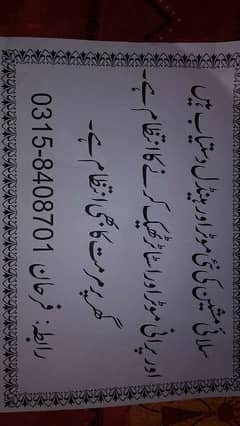 سلائی مشین کی نئی موٹر اور پینڈل دستیاب ہیں
اور پرانی موٹر اور اسٹارٹر ٹھیک کرنے کا انتظام ہے۔
گھر پر مرمت کا بھی انتظام ہے۔
رابطہ: فرحان 0315-8408701